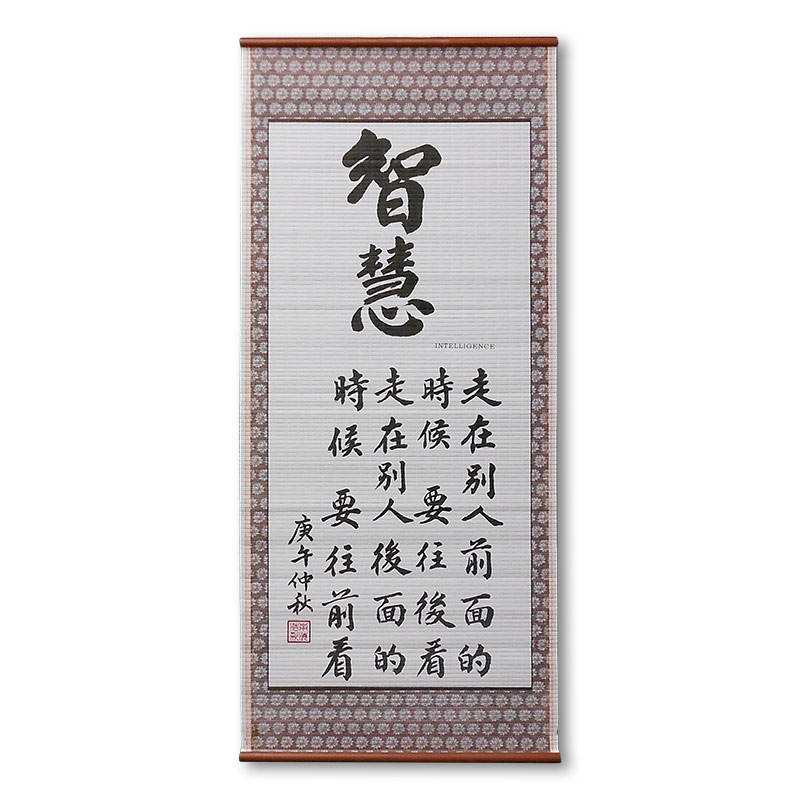 智慧
INTELLIGENCE
走在別人前面的
時候 要往後看
走在別人後面的
時候 要往前看
庚午仲秋